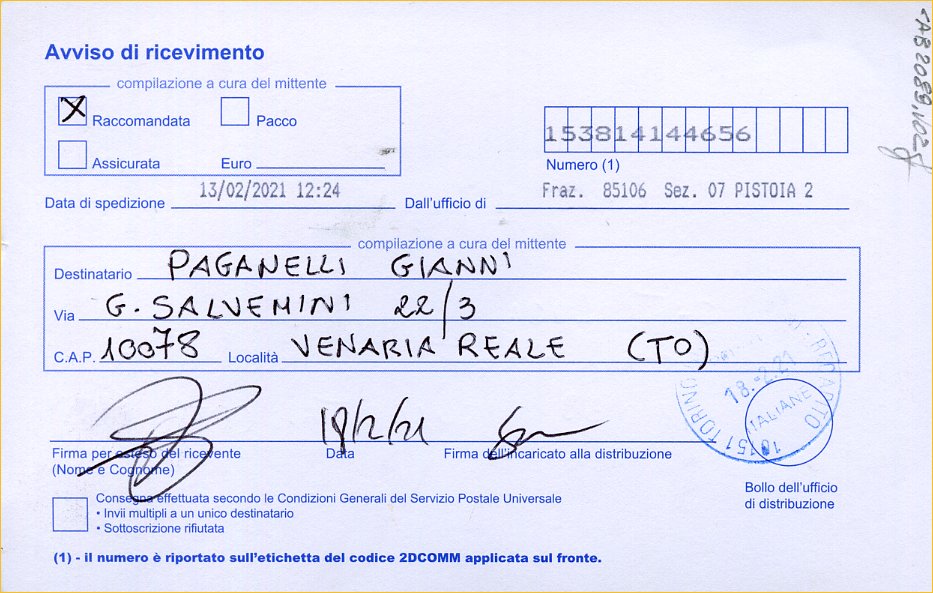 Avviso di ricevimento
compilazione a cura del mittente
X Raccomandata Pacco
Assicurata Euro
153814144656
Numero (1)
Data di spedizione 13/02/2021 12:24 Dall'ufficio di Fraz. 85106 Sez. 07 PISTOIA 2
compilazione a cura del mittente
Destinatario PAGANELLI GIANNI
Via G. SALVEMINI 22/3
C.A.P. 10078 Località VENARIA REALE (TO)
18/2/21
Firma per esteso del ricevente
(Nome e Cognome)
Data
Firma dell'incaricato alla distribuzione
18.-2.21
10151 TORINO
ITALIANE
Bollo dell'ufficio
di distribuzione
Consegna effettuata secondo le Condizioni Generali del Servizio Postale Universale
• Invii multipli a un unico destinatario
• Sottoscrizione rifiutata
(1) - il numero è riportato sull'etichetta del codice 2DCOMM applicata sul fronte.